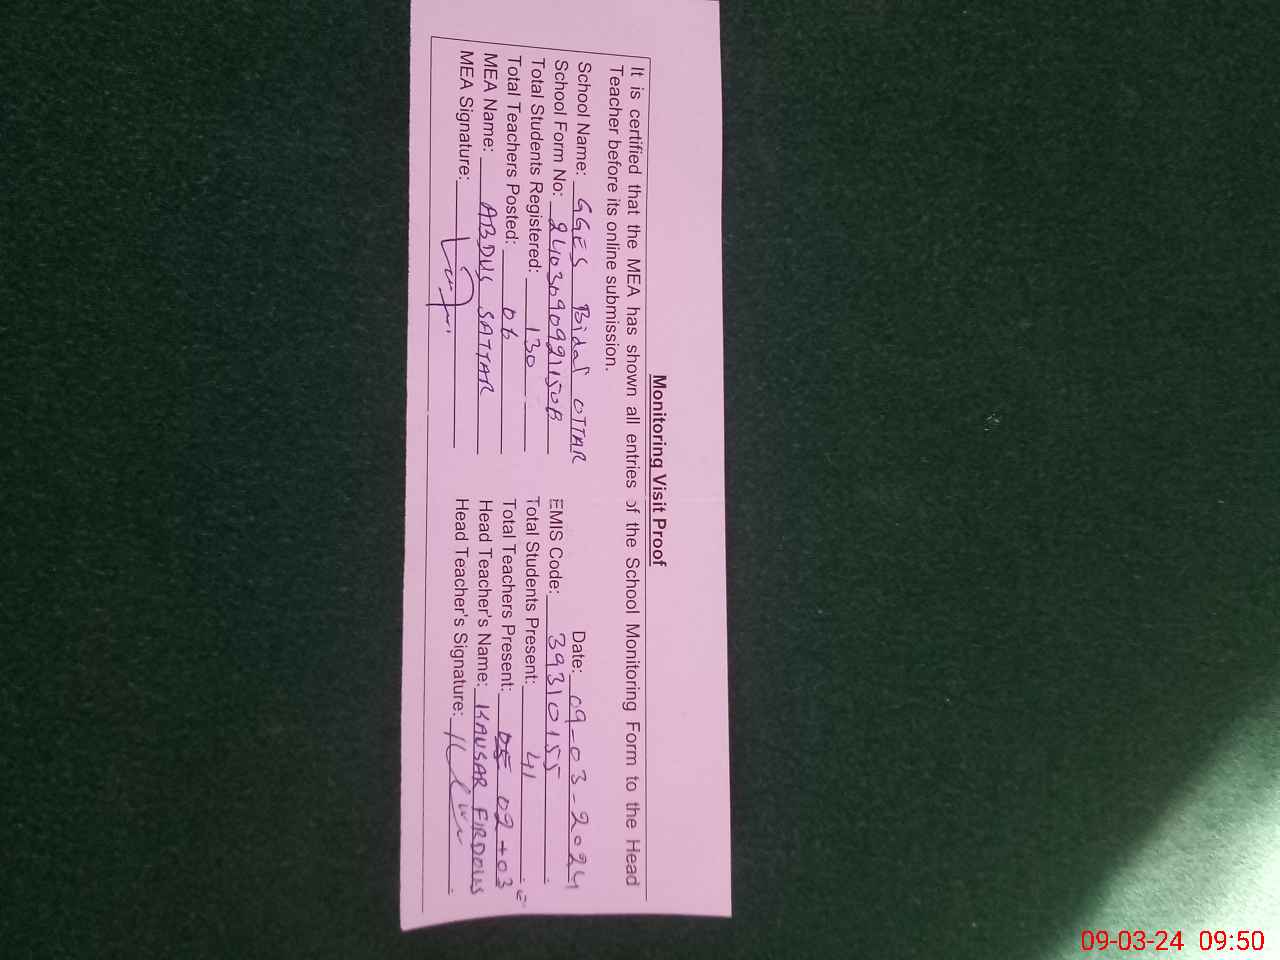 Monitoring Visit Proof
It is certified that the MEA has shown all entries of the School Monitoring Form to the Head
Teacher before its online submission.
School Name: GGES Bidal OTTAR Date: 09-03-2024
School Form No: EMIS Code: 39310155
Total Students Registered: 130 Total Students Present: 41
Total Teachers Posted: 06 Total Teachers Present: 02+03
MEA Name: ABDUS SATTAR Head Teacher's Name: KAUSAR FIRDOUS
MEA Signature: Head Teacher's Signature:
09-03-24 09:50